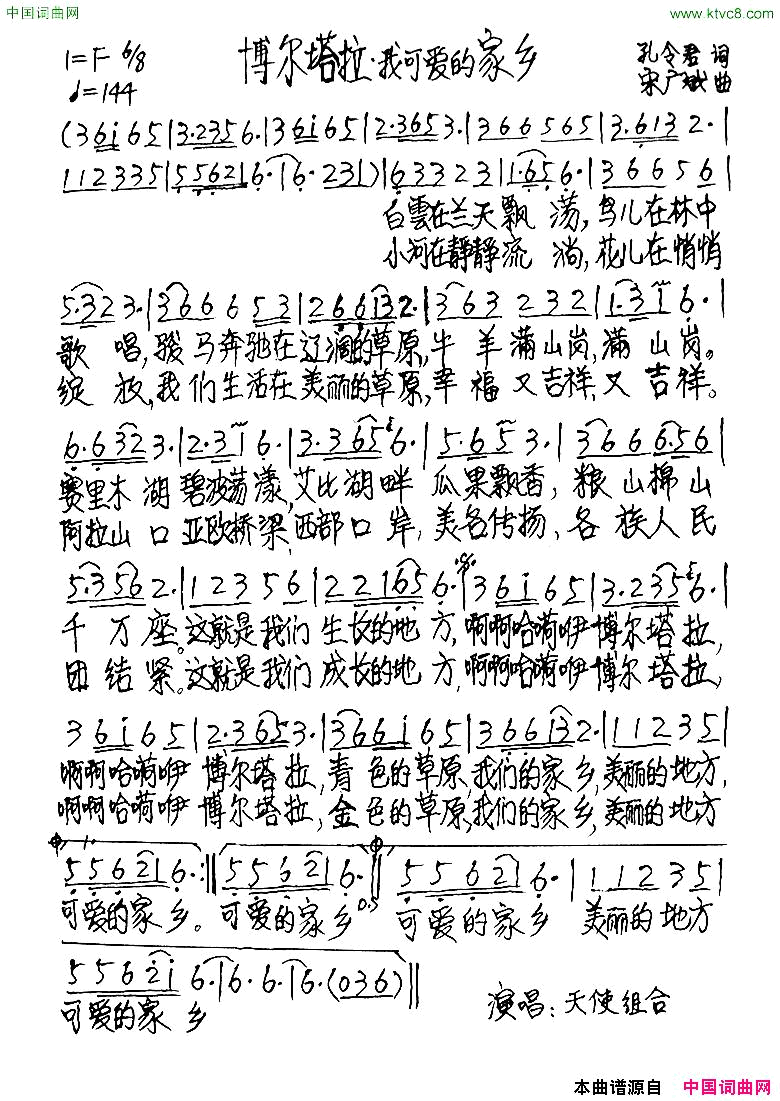 中国词曲网
www.ktvc8.com
博尔塔拉·我可爱的家乡
1=F 6/8
♩=144
孔令君 词
宋广斌 曲
(3 6 i 6 5|3·2 3 5 6·|3 6 i 6 5|2·3 6 5 3·|3 6 6 5 6 5|3·6 1 3 2·|
1 1 2 3 3 5|5 5 6 2 1|6·|6· 2 3 1)|6 3 3 2 3|1·6 5 6·|3 6 6 5 6|
白雲在兰天飘 荡,鸟儿在林中
小河在静静流 淌,花儿在悄悄
5·3 2 3·|3 6 6 6 5 3|2 6 6 1 3 2·|3 6 3 2 3 2|1·3 1 6·|
歌 唱,骏马奔驰在辽阔的草原,牛羊满山岗,满山岗。
绽放,我们生活在美丽的草原,幸福又吉祥,又吉祥。
6·6 3 2 3·|2·3 1 6·|3·3 6 5 6·|5·6 5 3·|3 6 6 6·5 6|
赛里木湖碧波荡漾,艾比湖畔 瓜果飘香,粮山棉山
阿拉山口亚欧桥梁,西部口岸,美名传扬,各族人民
5·3 5 6 2·|1 2 3 5 6|2 2 1 6 5 6·|3 6 i 6 5|3·2 3 5 6·|
千万座。这就是我们生长的地方,啊啊哈嗬咿博尔塔拉,
团结紧。这就是我们成长的地方,啊啊哈嗬咿博尔塔拉,
3 6 i 6 5|2·3 6 5 3·|3 6 6 i 6 5|3 6 6 1 3 2·|1 1 2 3 5|
啊啊哈嗬咿 博尔塔拉,青色的草原,我们的家乡,美丽的地方,
啊啊哈嗬咿 博尔塔拉,金色的草原,我们的家乡,美丽的地方
1.
5 5 6 2 1 6·:‖5 5 6 2 1 6·‖5 5 6 2 1 6·|1 1 2 3 5|
可爱的家乡。可爱的家乡 D.S 可爱的家乡 美丽的地方
5 5 6 2 i 6·|6·6·|6·(0 3 6)‖
可爱的家乡
演唱:天使组合
本曲谱源自 中国词曲网